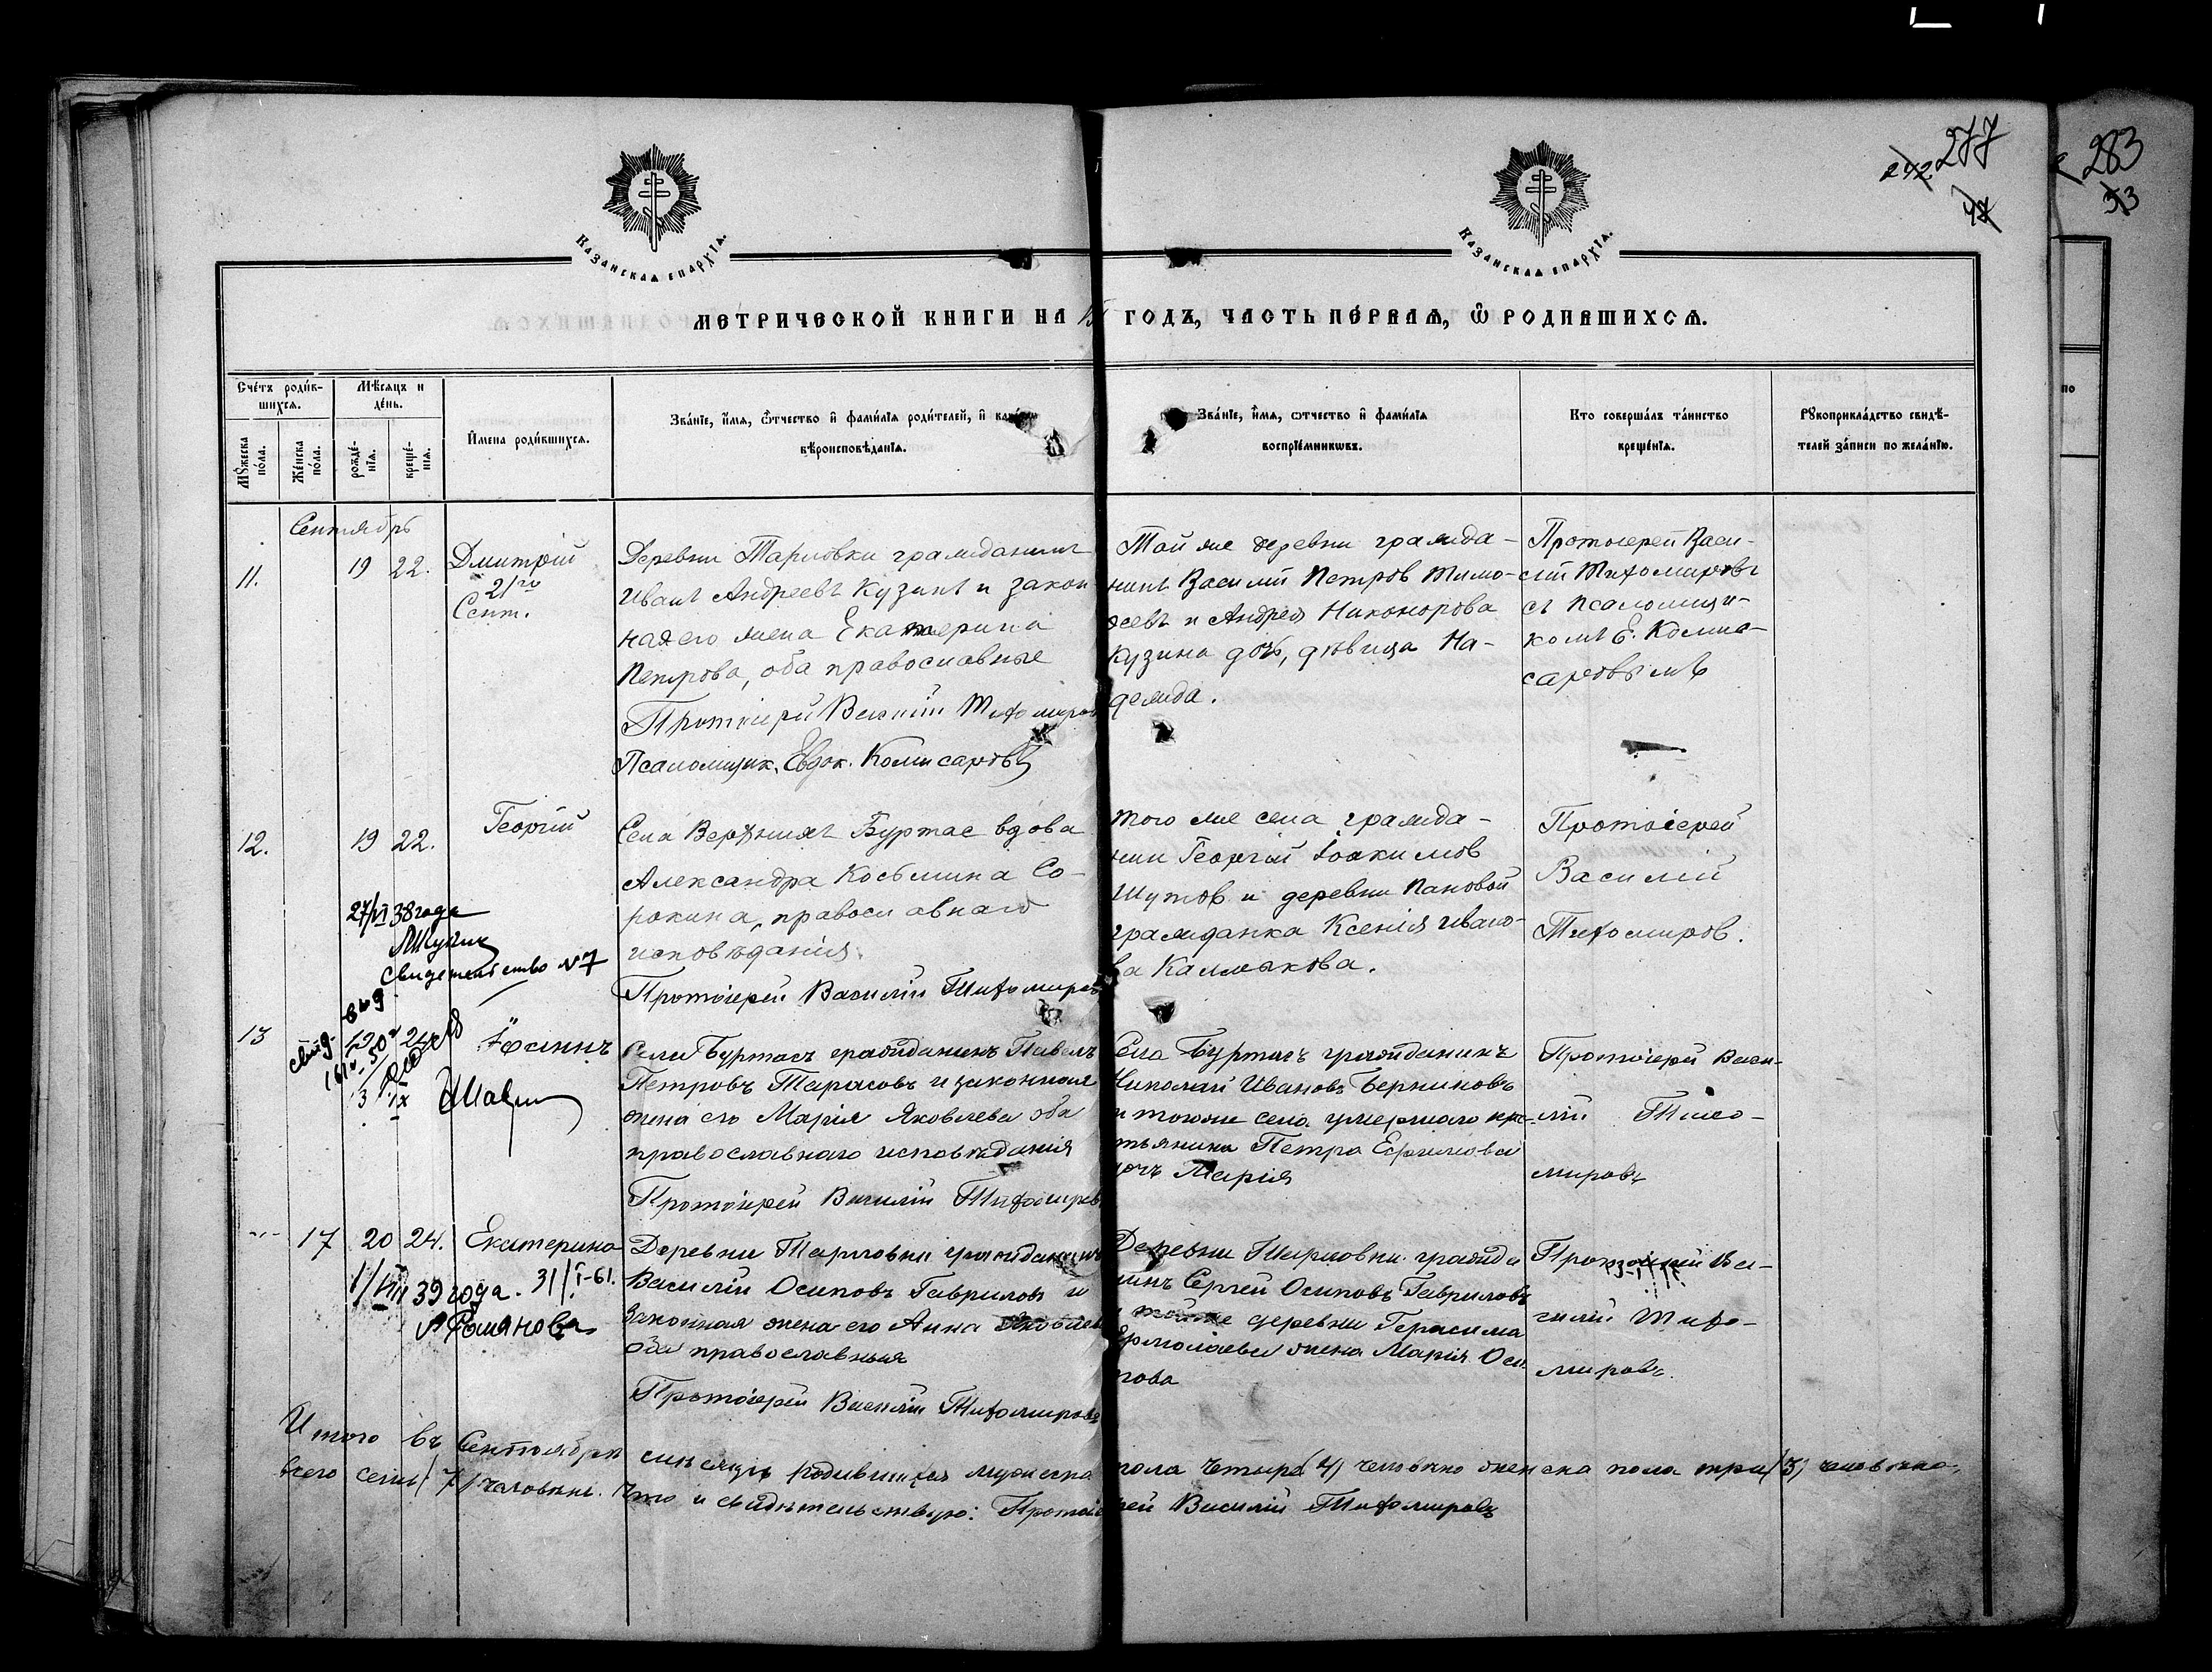 277
242
47
283
33
Казанская епархїа.
Казанская епархїа.
МЕТРИЧЕСКОЙ КНИГИ НА
ГОДЪ, ЧАСТЬ ПЕРВАЯ, Ѿ РОДИВШИХСЯ.
Счетъ родив-
шихся.
Мѣсяцъ и
день.
Мужеска
пола.
Женска
пола.
рожде-
нїя.
креще-
нїя.
Имена родившихся.
Званїе, имя, ѿтчество и фамилїя родителей, и
вѣроисповѣданїя.
Званїе, имя, ѿтчество и фамилїя
воспрїемникѡвъ.
Кто совершалъ таинство
крещенїя.
Рукоприкладство свидѣ-
телей записи по желанїю.
по
Сентябрь
11.
19 22.
Дмитрій
21го
Сент.
Деревни Тарловки гражданинъ
Иванъ Андреевъ Кузинъ и закон-
ная его жена Екатерина
Петрова, оба православные
Протоіерей Василій Тихомиров
Псаломщик. Евдок. Комисаровъ
Той же деревни гражда-
нинъ Василій Петров Тимо-
феевъ и Андрея Никонорова
Кузина дочь, дѣвица На-
дежда.
Протоіерей Васи-
лій Тихомировъ
съ псаломщи-
комъ Е. Комис-
саровымъ
12.
19 22.
Георгій
Села Верхнихъ Буртас вдова
Александра Косьмина Со-
рокина, православнаго
исповѣданія.
Протоіерей Василій Тихомиров
того же села гражда-
нин Георгій Іоакимов
Шутов и деревни Пановой
гражданка Ксенія Ивано-
ва Калмакова.
Протоіерей
Василій
Тихомиров.
27/VI 38 года
свидетельство №7
13
свид-
19 24
Іоаннъ
Села Буртасъ гражданинъ Павелъ
Петровъ Тарасовъ и законная
жена его Марія Яковлева оба
православнаго исповѣданія
Протоіерей Василій Тихомиров
Села Буртасъ гражданинъ
Николай Ивановъ Берниковъ
и того же села умершаго кре-
стьянина Петра Ефимова
дочь Марія
Протоіерей Васи-
лій Тихо-
мировъ
17 20 24.
Екатерина
Деревни Тарловки гражданинъ
Василій Осиповъ Гаврилов и
законная жена его Анна Яковлев
оба православныя
Протоіерей Василій Тихомировъ
Деревни Тарловки гражда
нинъ Сергей Осиповъ Гавриловъ
и той же деревни Герасима
Ермолаева жена Марія Оси-
пова
Протоіерей Ва-
силій Тихо-
мировъ.
1/VIII 39 года. 31/I-61.
Романова
Итого въ Сентябрѣ мѣсяцѣ родившихся мужеска пола четыре (4) человѣка женска пола три (3) человѣка,
всего семь (7) человѣкъ. Что и свидѣтельствую: Протоіерей Василій Тихомировъ